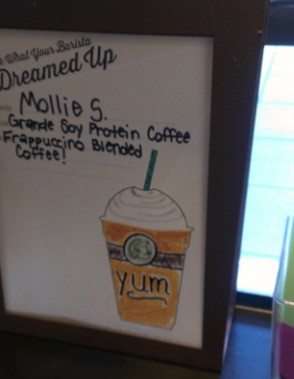 What Your Barista
Dreamed Up
Mollie S.
Grande Soy Protein Coffee
Frappuccino Blended
Coffee!
yum